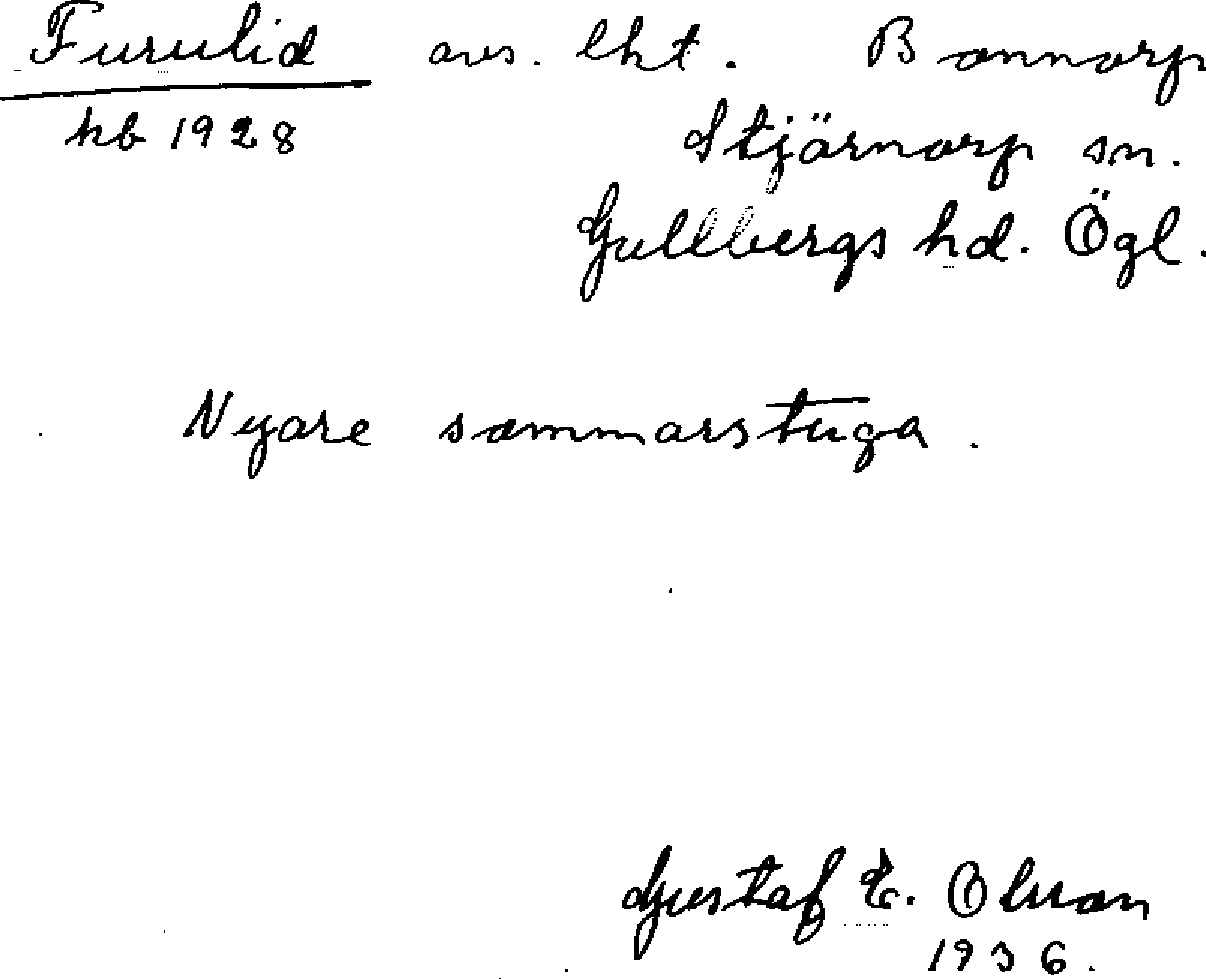 Furulid avs. lht. Bonnorp
kb 1928 Stjärnorp sn.
Gullbergs hd. Ögl.
Nyare sommarstuga.
Gustaf E. Olson
1936.